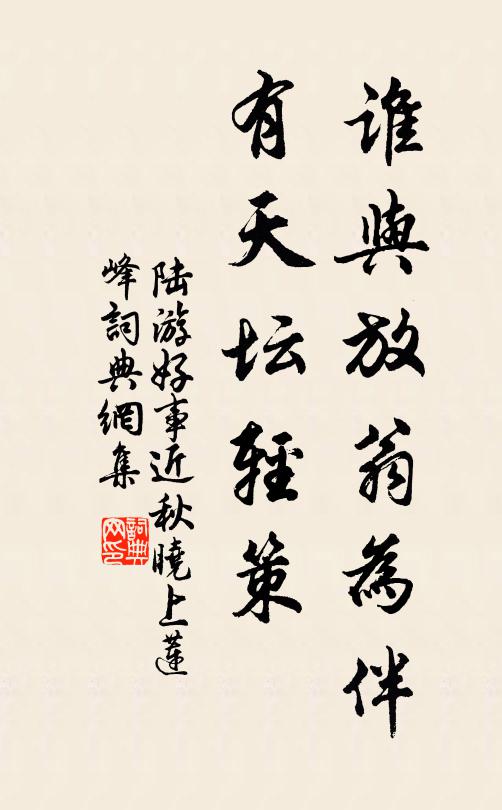 誰與放翁為伴
有天坛輕策
陆游好事近秋曉上蓮
峰詞典網集
詞典
网印